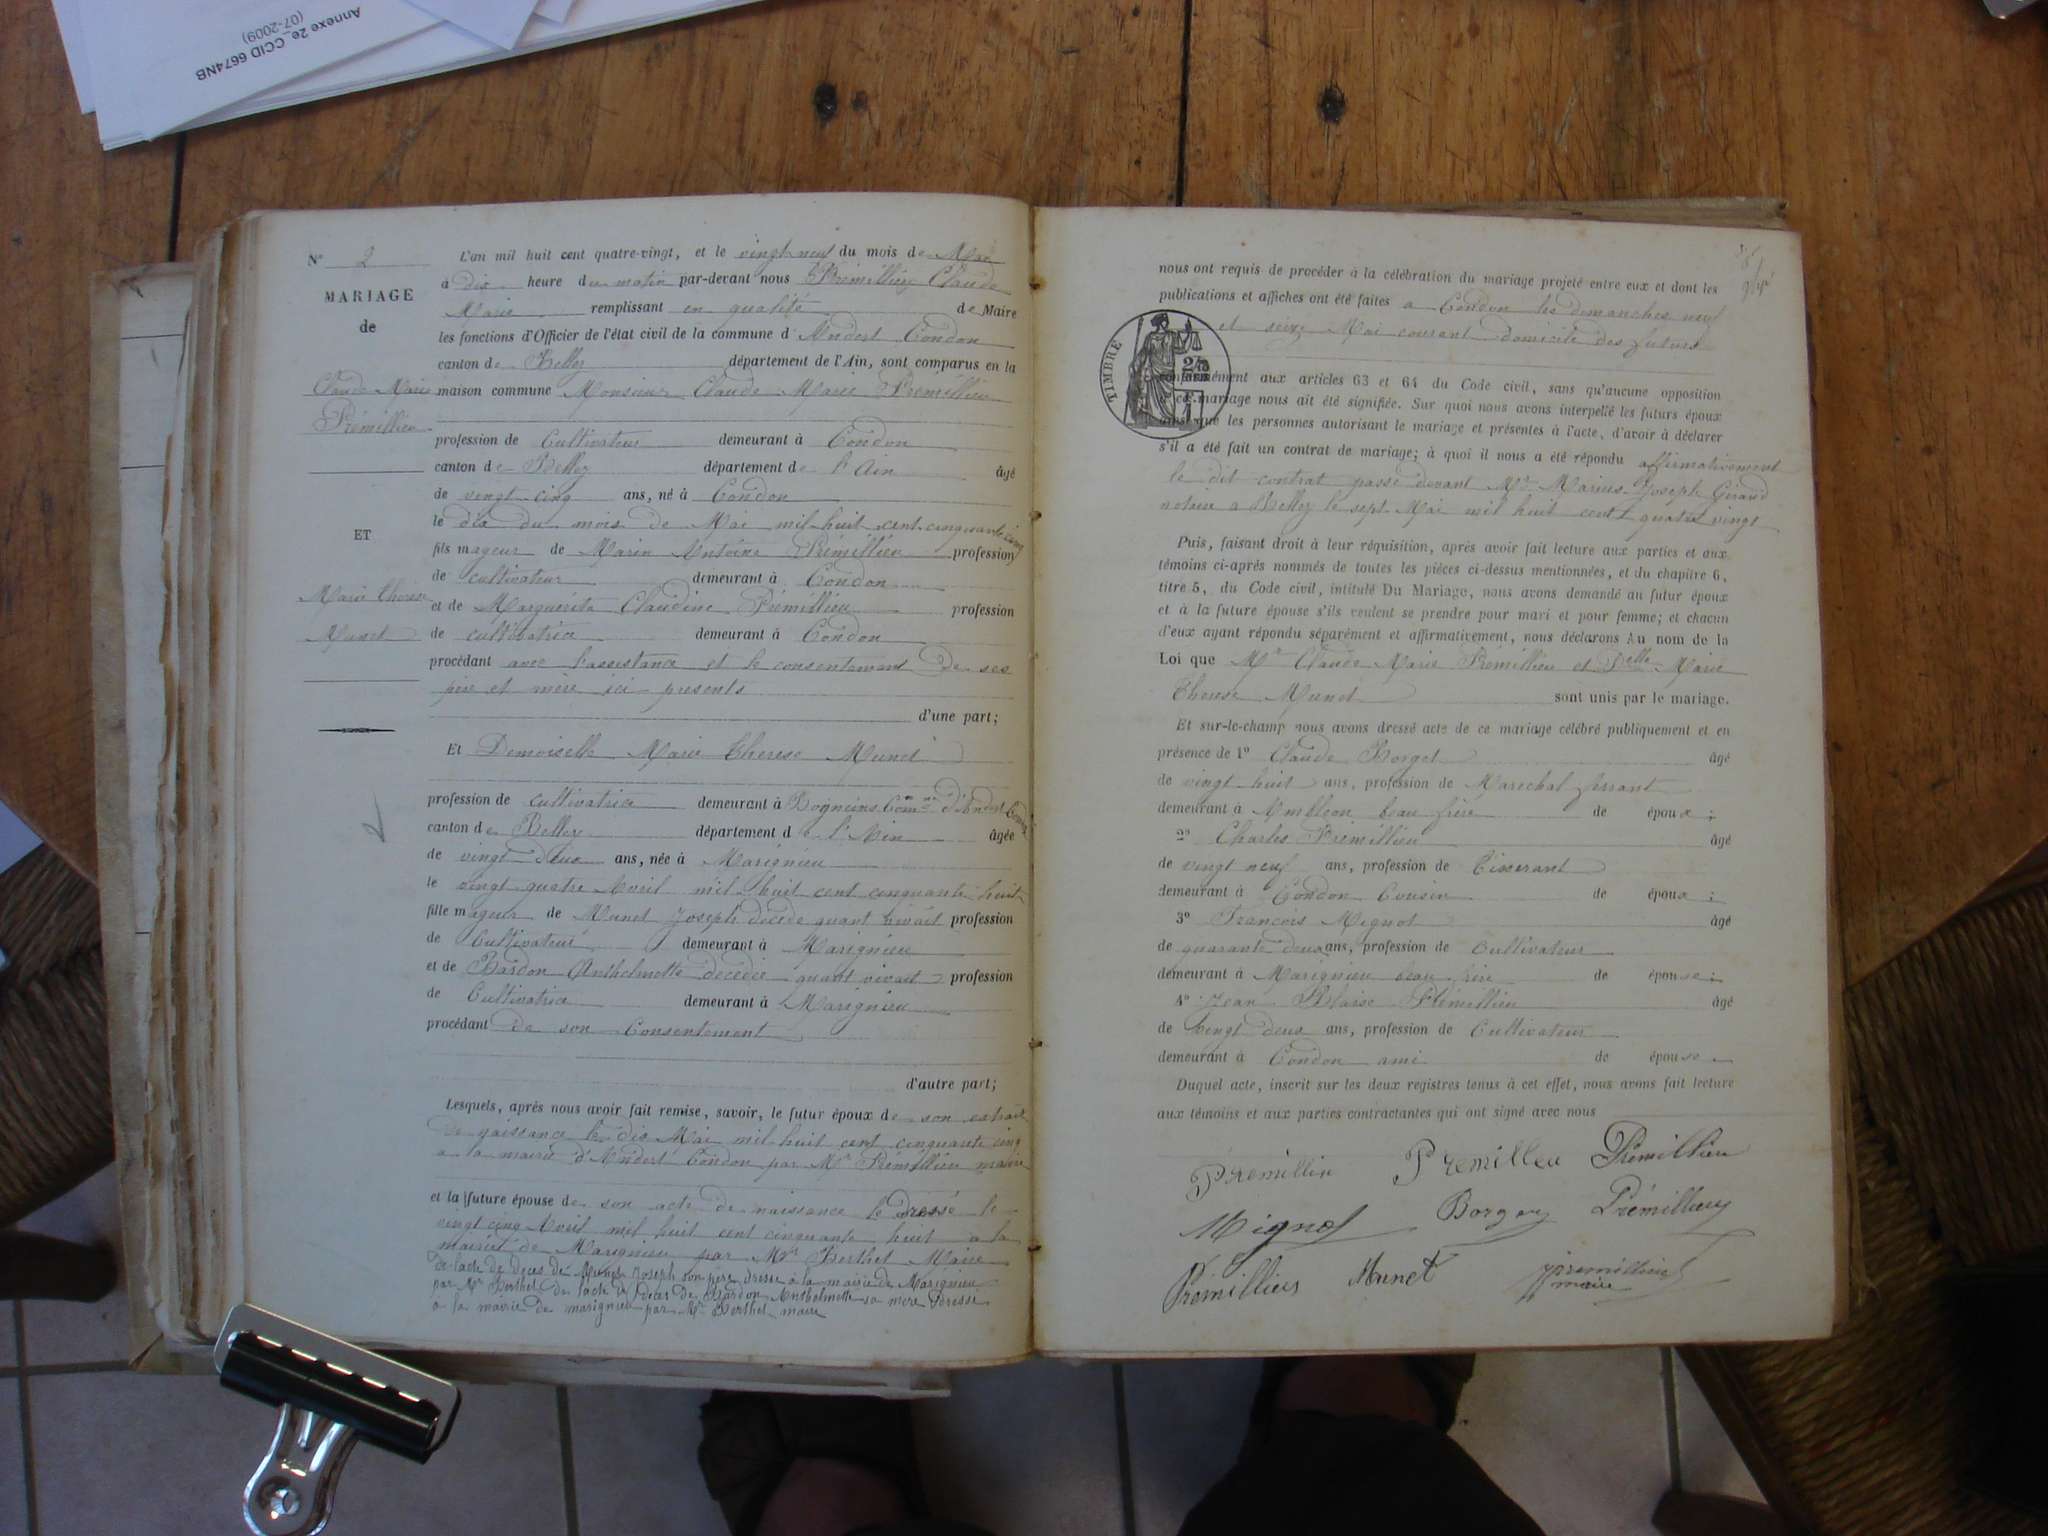 Annexe 2e_CCID 6674NB
(07-2009)
N° 2
MARIAGE
de
Claude Marie
Prémillieu
ET
Marie Thérèse
Munet
L'an mil huit cent quatre-vingt, et le vingt neuf du mois de Mai
à dix heure du matin par-devant nous Prémillieu Claude
Marie remplissant en qualité de Maire
les fonctions d'Officier de l'état civil de la commune d'Andert Condon
canton de Belley département de l'Ain, sont comparus en la
maison commune Monsieur Claude Marie Prémillieu
profession de Cultivateur demeurant à Condon
canton de Belley département de l'Ain âgé
de vingt cinq ans, né à Condon
le dix du mois de Mai mil huit cent cinquante cinq
fils mageur de Marin Antoine Prémillieu profession
de cultivateur demeurant à Condon
et de Marguerite Claudine Prémillieu profession
de cultivatrice demeurant à Condon
procédant avec l'assistance et le consentement de ses
père et mère ici presents
d'une part;
Et Demoiselle Marie Therese Munet
profession de cultivatrice demeurant à Bogneins Comne d'Andert Condon
canton de Belley département de l'Ain âgée
de vingt deux ans, née à Marignieu
le vingt quatre Avril mil huit cent cinquante huit
fille mageur de Munet Joseph décédé quant vivait profession
de Cultivateur demeurant à Marignieu
et de Bardon Anthelmette décédée quant vivait profession
de Cultivatrice demeurant à Marignieu
procédant de son Consentement
d'autre part;
Lesquels, après nous avoir fait remise, savoir, le futur époux de son extrait
de naissance le dix Mai mil huit cent cinquante cinq
a la mairie d'Andert Condon par Mr Prémillieu maire
et la future épouse de son acte de naissance le dressé le
vingt cinq Avril mil huit cent cinquante huit a la
mairie de Marignieu par Mr Berthet Maire
de l'acte de deces de Munet Joseph son père dressé à la mairie de Marignieu
par Mr Berthet de l'acte de deces de Bardon Anthelmette sa mère dressé
a la mairie de marignieu par Mr Berthet maire
nous ont requis de procéder à la célébration du mariage projeté entre eux et dont les
publications et affiches ont été faites a Condon les dimanches neuf
et seize Mai courant domicile des futurs
TIMBRE
conformément aux articles 63 et 64 du Code civil, sans qu'aucune opposition
à ce mariage nous ait été signifiée. Sur quoi nous avons interpellé les futurs époux
ainsi que les personnes autorisant le mariage et présentes à l'acte, d'avoir à déclarer
s'il a été fait un contrat de mariage; à quoi il nous a été répondu affirmativement
le dit contrat passé devant Mr Marius Joseph Giraud
notaire a Belley le sept Mai mil huit cent quatre vingt
Puis, faisant droit à leur réquisition, après avoir fait lecture aux parties et aux
témoins ci-après nommés de toutes les pièces ci-dessus mentionnées, et du chapitre 6,
titre 5, du Code civil, intitulé Du Mariage, nous avons demandé au futur époux
et à la future épouse s'ils veulent se prendre pour mari et pour femme; et chacun
d'eux ayant répondu séparément et affirmativement, nous déclarons Au nom de la
Loi que Mr Claude Marie Prémillieu et Delle Marie
Therese Munet sont unis par le mariage.
Et sur-le-champ nous avons dressé acte de ce mariage célébré publiquement et en
présence de 1° Claude Borget âgé
de vingt huit ans, profession de Marechal ferrant
demeurant à Ambleon beau frère de époux;
2° Charles Prémillieu âgé
de vingt neuf ans, profession de Tisserant
demeurant à Condon Cousin de époux;
3° François Mignot âgé
de quarante deux ans, profession de Cultivateur
demeurant à Marignieu beau frère de épouse;
4° Jean Blaise Prémillieu âgé
de vingt deux ans, profession de Cultivateur
demeurant à Condon ami de épouse
Duquel acte, inscrit sur les deux registres tenus à cet effet, nous avons fait lecture
aux témoins et aux parties contractantes qui ont signé avec nous
Premillieu Premilleu Prémillieu
Mignot Borget Prémillieu
Prémillieu Munet premillieu
maire